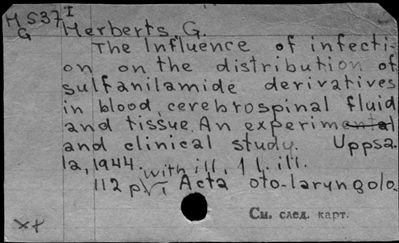 MS37I
G
Herberts, G.
The Influence of infecti-
on on the distribution of
sulfanilamide derivatives
in blood, cerebrospinal fluid
and tissue. An experimental
and clinical study. Uppsa-
la, 1944.
with ill., 1 l. ill.
112 p., Acta oto-laryngolo
См. след. карт.